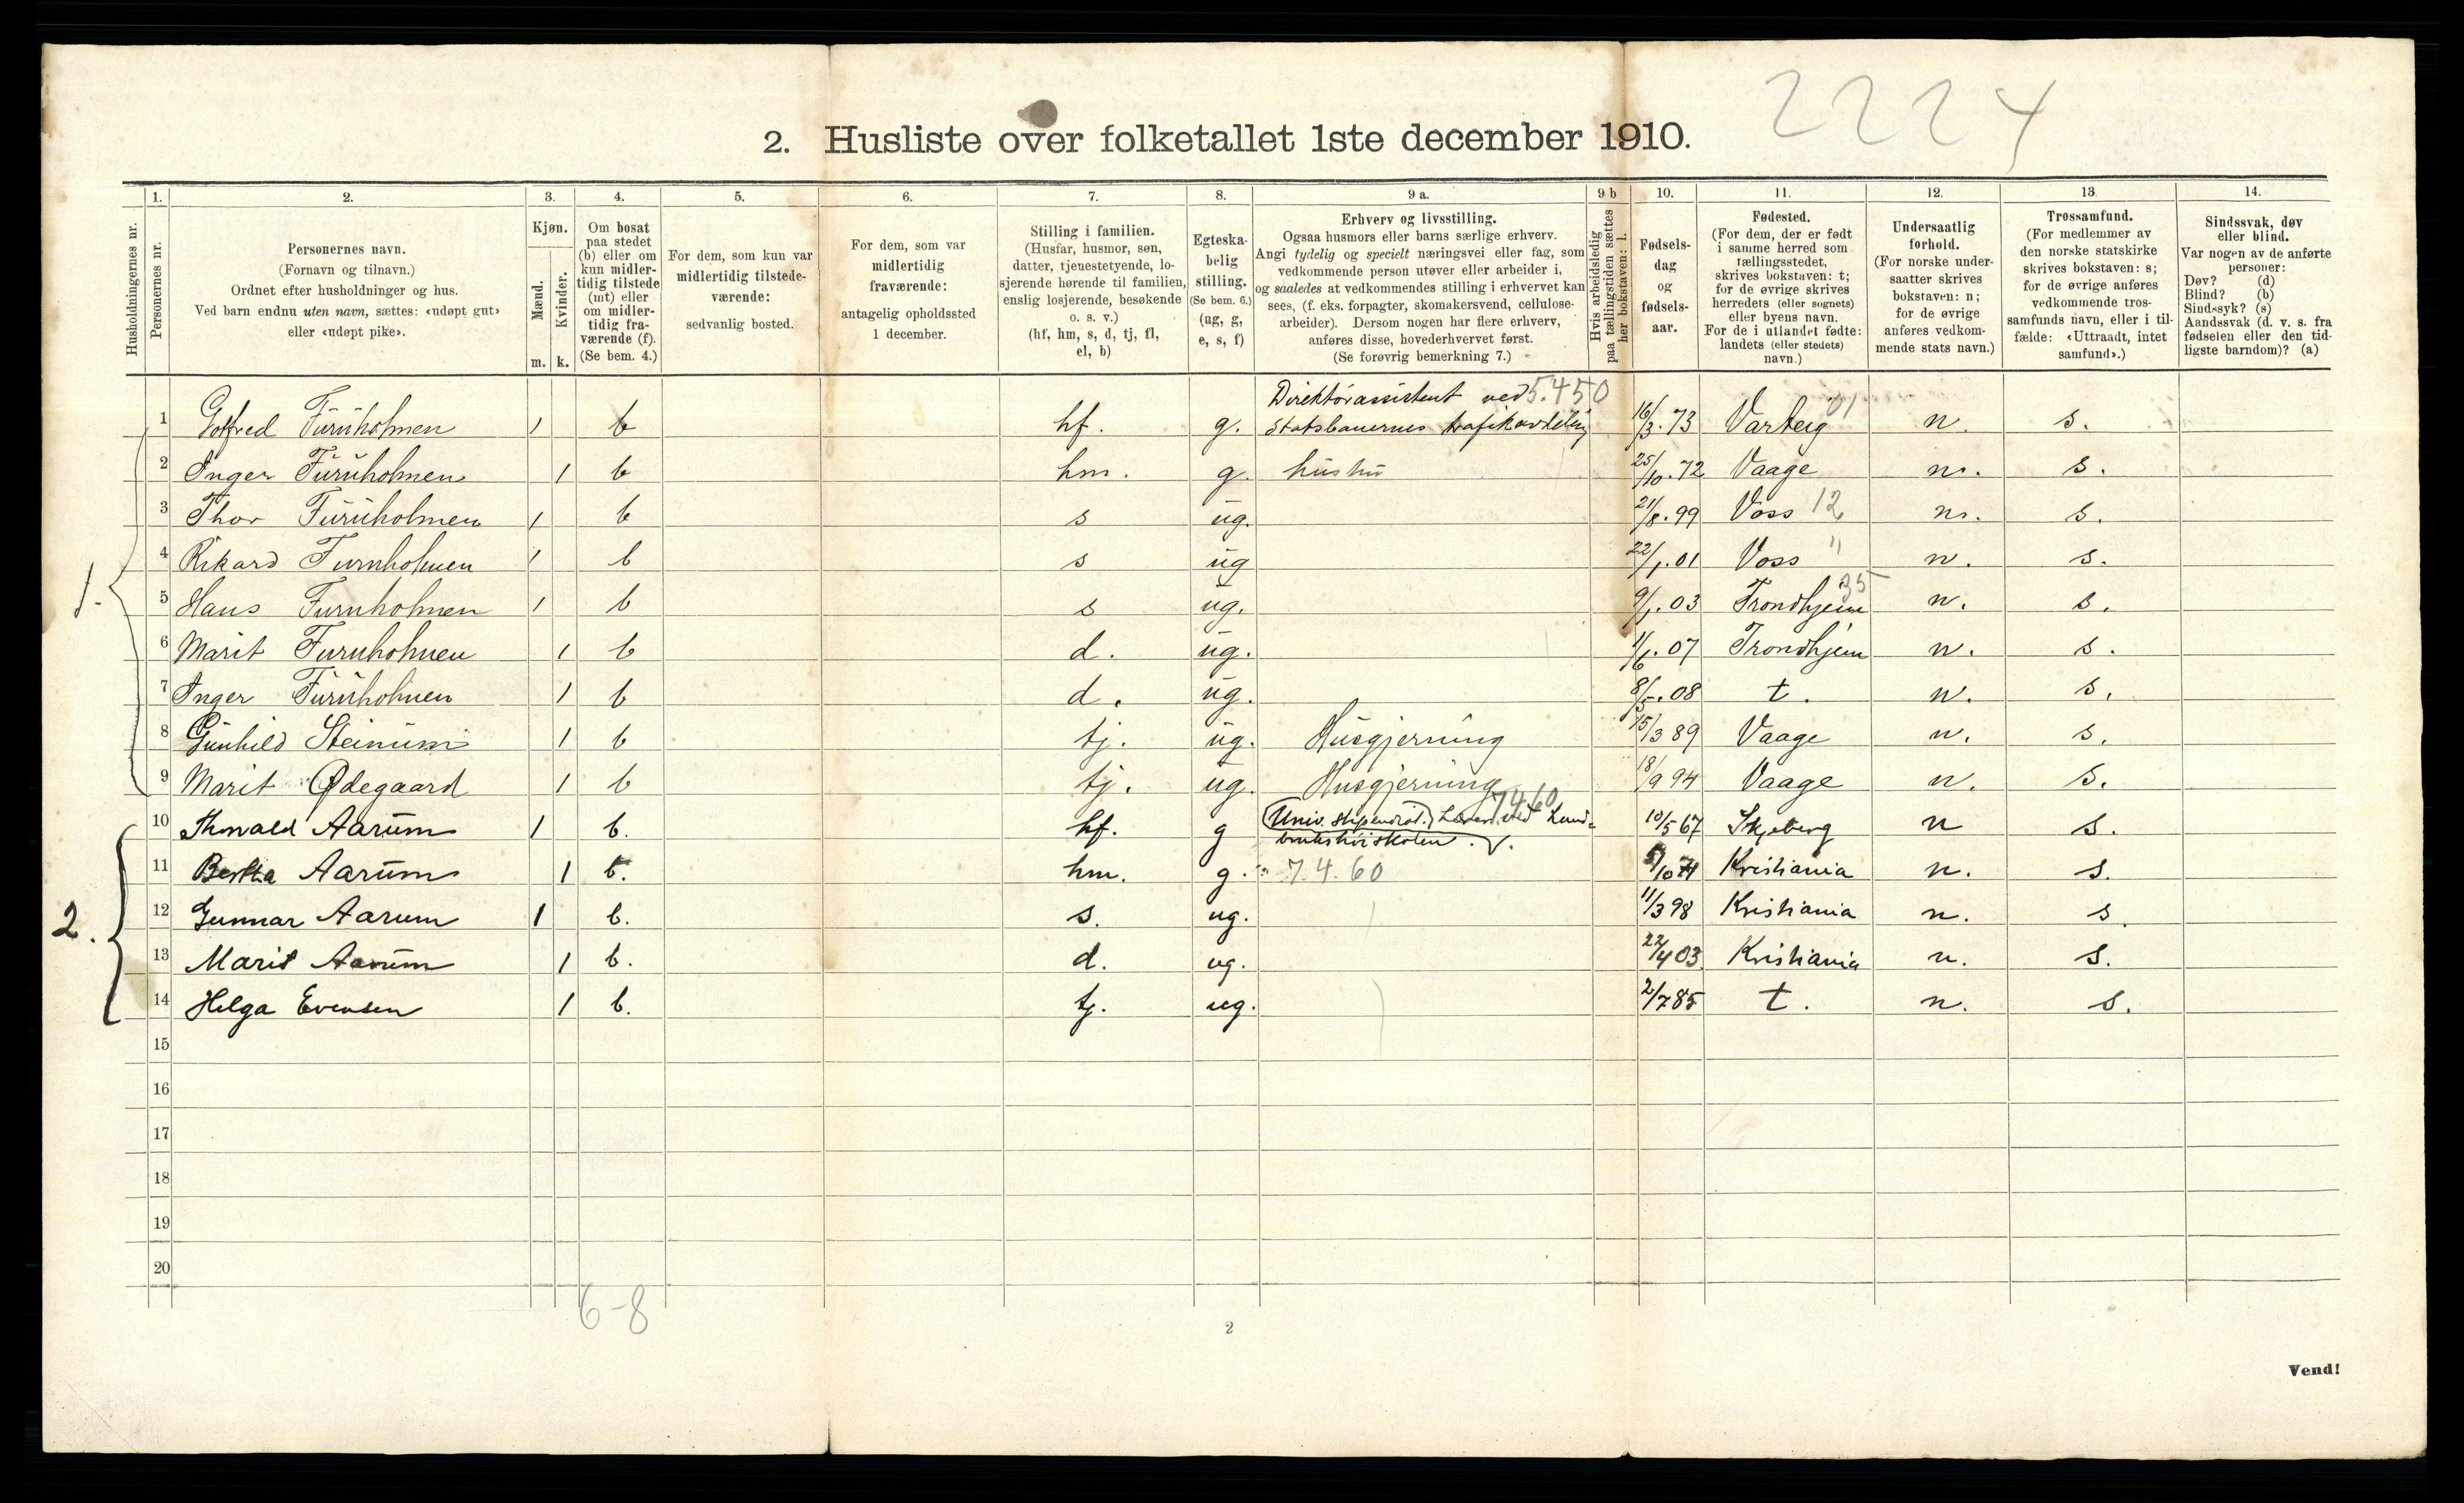 2224
2. Husliste over folketallet 1ste december 1910.
1. 2. 3. 4. 5. 6. 7. 8. 9 a. 9 b 10. 11. 12. 13. 14.
Husholdningernes nr.
Personernes nr.
Personernes navn.
(Fornavn og tilnavn.)
Ordnet efter husholdninger og hus.
Ved barn endnu uten navn, sættes: «udøpt gut»
eller «udøpt pike».
Kjøn.
Mænd.
Kvinder.
m. k.
Om bosat
paa stedet
(b) eller om
kun midler-
tidig tilstede
(mt) eller
om midler-
tidig fra-
værende (f).
(Se bem. 4.)
For dem, som kun var
midlertidig tilstede-
værende:
sedvanlig bosted.
For dem, som var
midlertidig
fraværende:
antagelig opholdssted
1 december.
Stilling i familien.
(Husfar, husmor, søn,
datter, tjenestetyende, lo-
sjerende hørende til familien,
enslig losjerende, besøkende
o. s. v.)
(hf, hm, s, d, tj, fl,
el, b)
Egteska-
belig
stilling.
(Se bem. 6.)
(ug, g,
e, s, f)
Erhverv og livsstilling.
Ogsaa husmors eller barns særlige erhverv.
Angi tydelig og specielt næringsvei eller fag, som
vedkommende person utøver eller arbeider i,
og saaledes at vedkommendes stilling i erhvervet kan
sees, (f. eks. forpagter, skomakersvend, cellulose-
arbeider). Dersom nogen har flere erhverv,
anføres disse, hovederhvervet først.
(Se forøvrig bemerkning 7.)
Hvis arbeidsledig
paa tællingstiden sættes
her bokstaven: l.
Fødsels-
dag
og
fødsels-
aar.
Fødested.
(For dem, der er født
i samme herred som
tællingsstedet,
skrives bokstaven: t;
for de øvrige skrives
herredets (eller sognets)
eller byens navn.
For de i utlandet fødte:
landets (eller stedets)
navn.)
Undersaatlig
forhold.
(For norske under-
saatter skrives
bokstaven: n;
for de øvrige
anføres vedkom-
mende stats navn.)
Trossamfund.
(For medlemmer av
den norske statskirke
skrives bokstaven: s;
for de øvrige anføres
vedkommende tros-
samfunds navn, eller i til-
fælde: «Uttraadt, intet
samfund».)
Sindssvak, døv
eller blind.
Var nogen av de anførte
personer:
Døv? (d)
Blind? (b)
Sindssyk? (s)
Aandssvak (d. v. s. fra
fødselen eller den tid-
ligste barndom)? (a)
Direktørassistent ved 5.450
1 Gotfred Furuholmen 1 b hf. g. Statsbanernes trafikavdeling 16/3.73 Varteig 01 n. s.
2 Inger Furuholmen 1 b hm. g. hustru 25/10.72 Vaage n. s.
3 Thor Furuholmen 1 b s ug. 21/8.99 Voss 12 n. s.
1. 4 Rikard Furuholmen 1 b s ug 22/1.01 Voss " n. s.
5 Hans Furuholmen 1 b s ug. 9/1.03 Trondhjem 35 n. s.
6 Marit Furuholmen 1 b d. ug. 1/6.07 Trondhjem n. s.
7 Inger Furuholmen 1 b d. ug. 8/5.08 t. n. s.
8 Gunhild Steinum 1 b tj. ug. Husgjerning 15/3 89 Vaage n. s.
9 Marit Ødegaard 1 b tj. ug. Husgjerning 18/9 94 Vaage n. s.
7.4.60
10 Thorvald Aarum 1 b. hf. g (Univ. stipendiat.) Lærer ved Land- 10/5 67 Skjeberg n s.
brukshøiskolen.
11 Bertha Aarum 1 b. hm. g. 7.4.60 5/10 74 Kristiania n. s.
2. 12 Gunnar Aarum 1 b. s. ug. 11/3 98 Kristiania n. s
13 Marit Aarum 1 b. d. ug. 22/4 03 Kristiania n. s.
14 Helga Evensen 1 b. tj. ug. 2/7 85 t. n. s.
15
16
17
18
19
20
6-8
2
Vend!